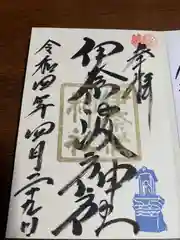 奉拝
伊奈波神社
令和四年四月二十九日